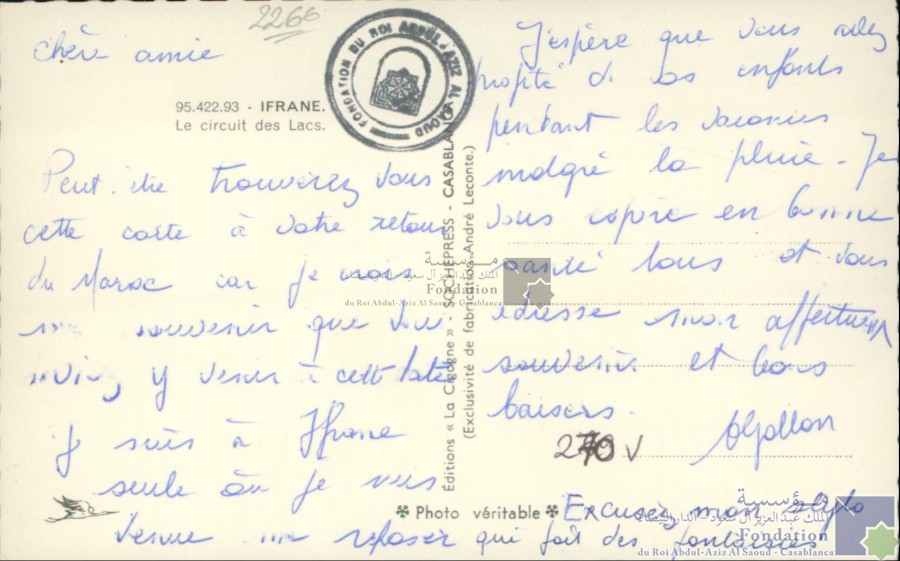 2266
chère amie
95.422.93 - IFRANE.
Le circuit des Lacs.
Peut être trouverez vous
cette carte à votre retour
du Maroc car je crois
me souvenir que vous
deviez y venir à cette date
je suis à Ifrane
seule où je suis
venue me reposer
FONDATION DU ROI ABDUL-AZIZ AL SAOUD
Editions « La Cigogne » - SOCHEPRESS - CASABLANCA
(Exclusivité de fabrication André Leconte.)
J'espère que vous avez
profité de vos enfants
pendant les vacances
malgré la pluie. Je
vous espère en bonne
santé tous et vous
adresse mon affectueux
souvenir et bons
baisers.
270 V
Photo véritable
Excusez mon stylo
qui fait des fantaisies
مؤسسة
الملك عبد العزيز آل سعود - الدار البيضاء
Fondation
du Roi Abdul-Aziz Al Saoud - Casablanca
مؤسسة
الملك عبد العزيز آل سعود - الدار البيضاء
Fondation
du Roi Abdul-Aziz Al Saoud - Casablanca